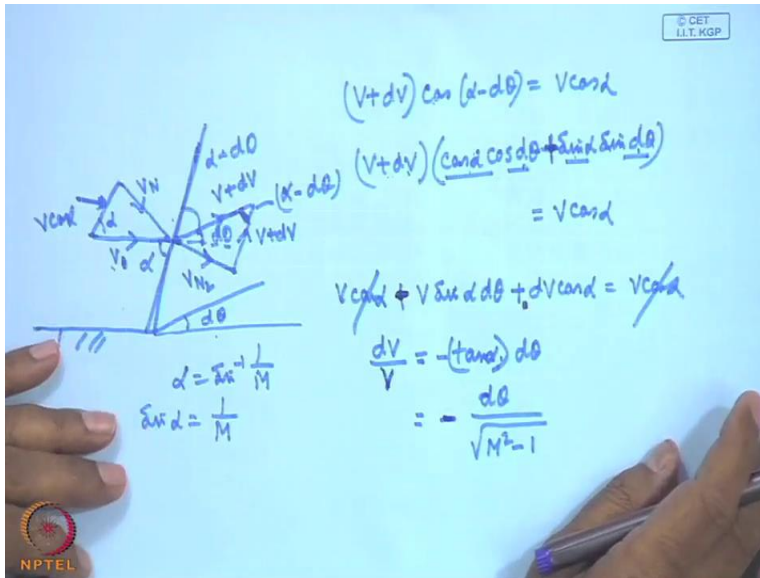 © CET
I.I.T. KGP
(V+dV) cos (α-dθ) = Vcosα
(V+dV) (cosα cos dθ + sinα sin dθ)
= Vcosα
Vcosα + V sinα dθ + dVcosα = Vcosα
dV/V = -(tanα) dθ
= - dθ/√(M²-1)
α-dθ
V+dV
(α-dθ)
VN
Vcosα
α
dθ
V+dV
α
VN₂
dθ
α = sin⁻¹ 1/M
sinα = 1/M
NPTEL